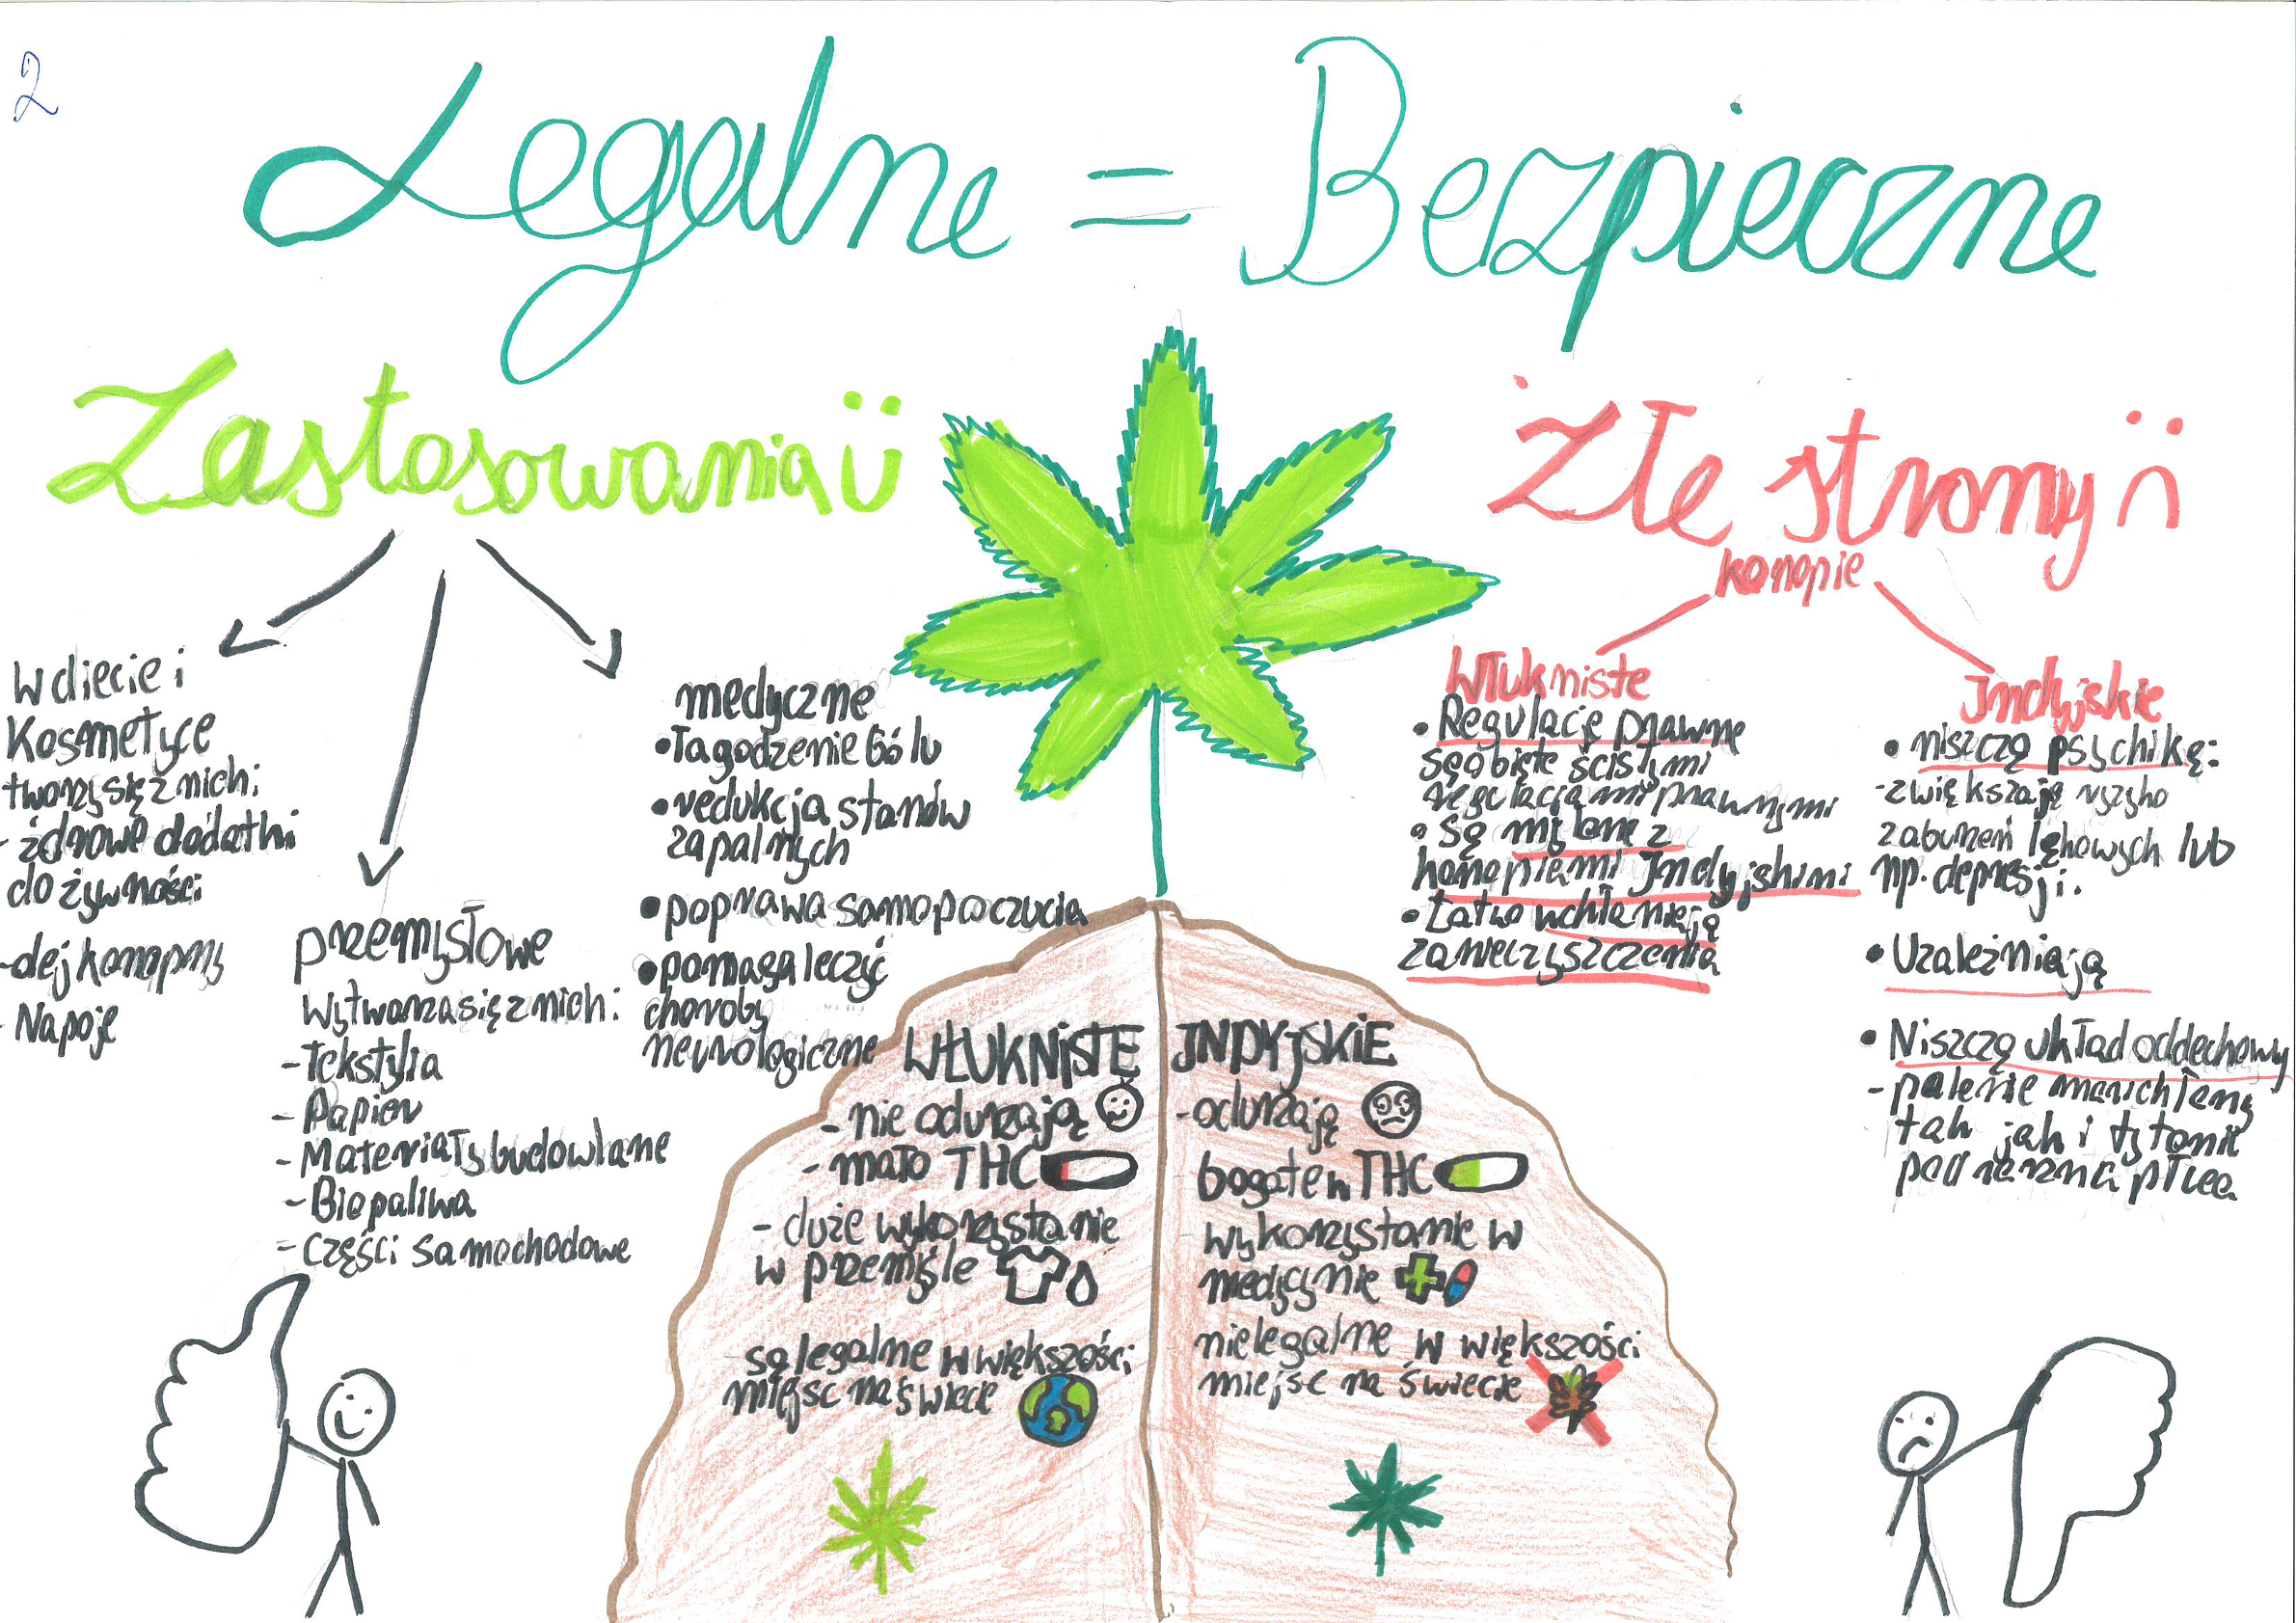 2
Legalne = Bezpieczne
Zastosowania
W diecie i
Kosmetyce
tworzy się z nich:
- zdrowe dodatki
do żywności
- olej konopny
- Napoje
przemysłowe
wytwarza się z nich:
- Tekstylia
- Papier
- Materiały budowlane
- Biopaliwa
- części samochodowe
medyczne
• łagodzenie bólu
• redukcja stanów
zapalnych
• poprawa samopoczucia
• pomaga leczyć
choroby
neurologiczne
Złe strony
konopie
Włukniste
• Regulacje prawne
są objęte ścisłymi
regulacjami prawnymi
• są mylone z
konopiami Indyjskimi
• Łatwo wchłaniają
zanieczyszczenia
Indyjskie
• niszczą psychikę:
- zwiększają ryzyko
zaburzeń lękowych lub
np. depresji.
• Uzależniają
• Niszczą układ oddechowy
- palenie marichłany
tak jak i tytoniu
podrażnia płuca
WŁUKNISTE
- nie odurzają
- mało THC
- duże wykorzystanie
w przemyśle
- są legalne w większości
miejsc na świecie
INDYJSKIE
- odurzają
bogate w THC
wykorzystanie w
medycynie
nielegalne w większości
miejsc na świecie